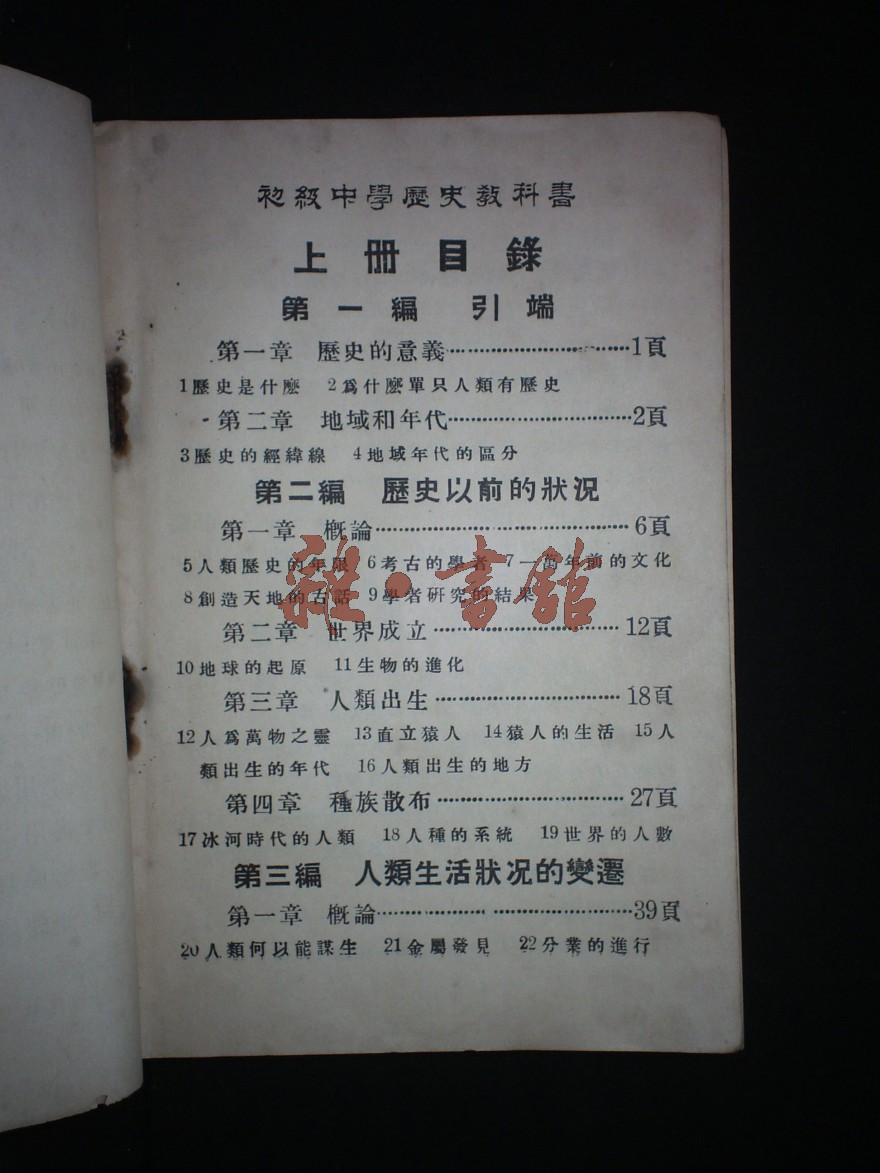 初級中學歷史教科書
上冊目錄
第一編 引端
第一章 歷史的意義……………………1頁
1歷史是什麽 2爲什麽單只人類有歷史
第二章 地域和年代……………………2頁
3歷史的經緯線 4地域年代的區分
第二編 歷史以前的狀況
第一章 概論……………………6頁
5人類歷史的年限 6考古的學者 7一萬年前的文化
8創造天地的古話 9學者研究的結果
雜·書館
第二章 世界成立……………………12頁
10地球的起原 11生物的進化
第三章 人類出生……………………18頁
12人爲萬物之靈 13直立猿人 14猿人的生活 15人
類出生的年代 16人類出生的地方
第四章 種族散布……………………27頁
17冰河時代的人類 18人種的系統 19世界的人數
第三編 人類生活狀况的變遷
第一章 概論……………………39頁
20人類何以能謀生 21金屬發見 22分業的進行